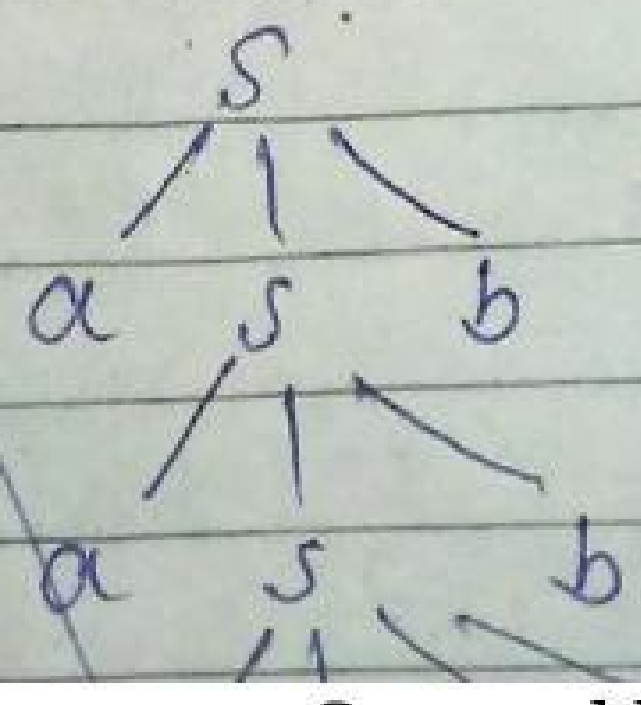 S
a s b
a s b